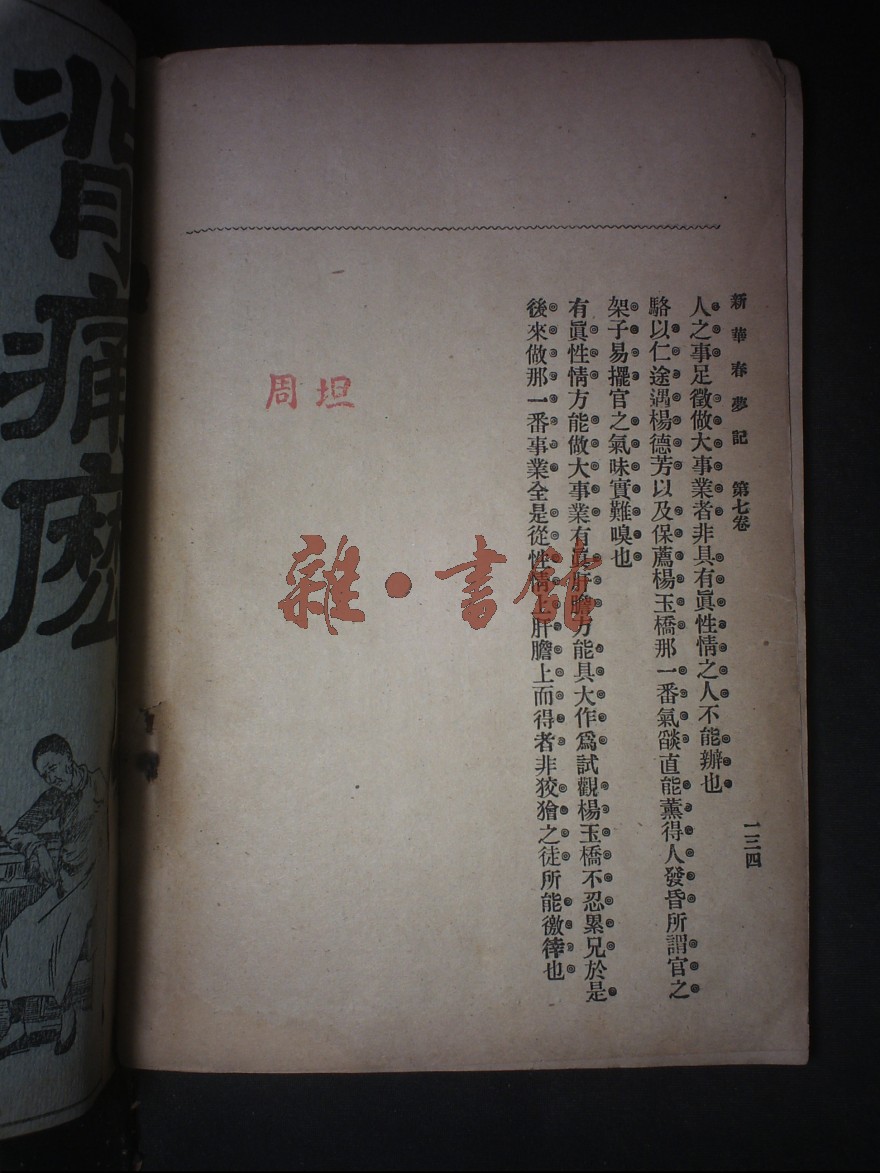 新華春夢記　第七卷　一三四
人之事足徵做大事業者非具有眞性情之人不能辦也
駱以仁途遇楊德芳以及保薦楊玉橋那一番氣燄直能薰得人發昏所謂官之
架子易擺官之氣味實難嗅也
有眞性情方能做大事業有眞肝膽方能具大作爲試觀楊玉橋不忍累兄於是
後來做那一番事業全是從性情上肝膽上而得者非狡獪之徒所能徼倖也
周坦
雜·書館
背痛麽